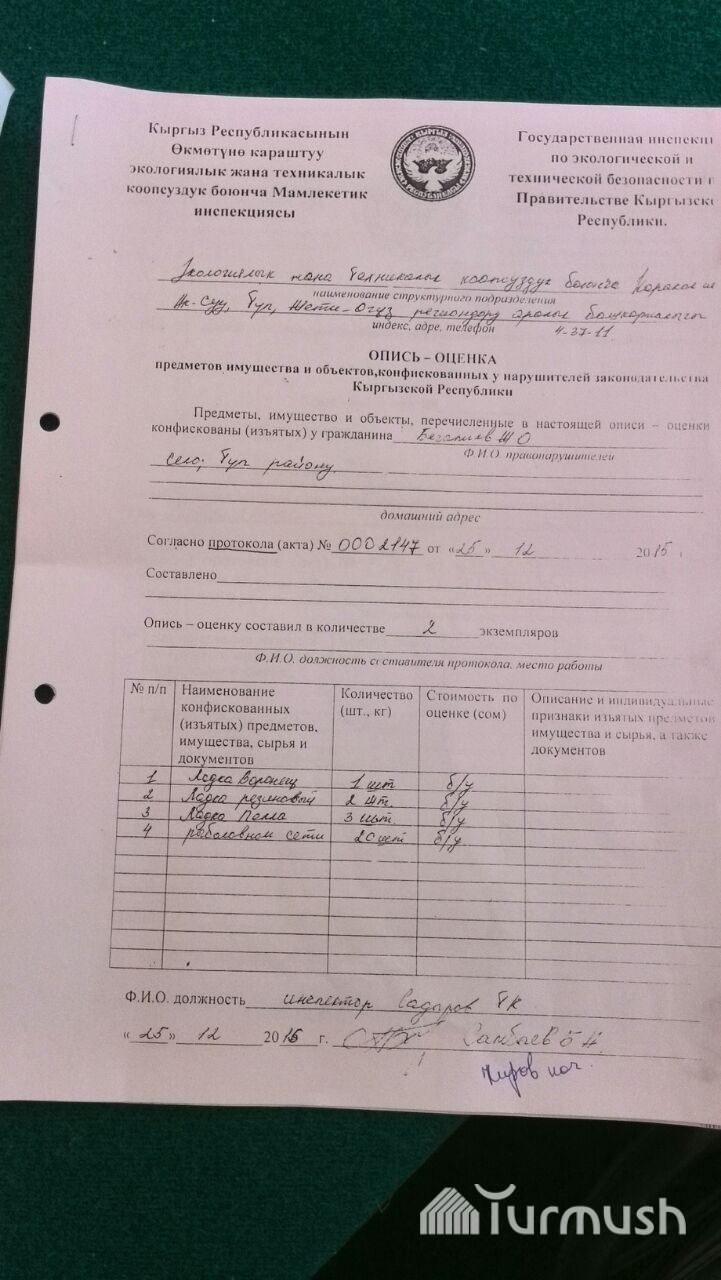 Кыргыз Республикасынын
Өкмөтүнө караштуу
экологиялык жана техникалык
коопсуздук боюнча Мамлекетик
инспекциясы
Государственная инспекци
по экологической и
технической безопасности п
Правительстве Кыргызско
Республики.
Экологиялык жана техникалык коопсуздук боюнча Каракол ш
наименование структурного подразделения
Ак-Суу, Түп, Жети-Огуз региондор аралык башкармалыгы
индекс, адре, телефон 4-37-11
ОПИСЬ – ОЦЕНКА
предметов имущества и объектов,конфискованных у нарушителей законодательства
Кыргызской Республики
Предметы, имущество и объекты, перечисленные в настоящей описи – оценки
конфискованы (изъятых) у гражданина
Ф.И.О. правонарушителей
село; Түп району
домашний адрес
Согласно протокола (акта) № 0002147 от «25» 12 2015 г
Составлено
Опись – оценку составил в количестве 2 экземпляров
Ф.И.О. должность составителя протокола, место работы
№ п/п
Наименование
конфискованных
(изъятых) предметов,
имущества, сырья и
документов
Количество
(шт., кг)
Стоимость по
оценке (сом)
Описание и индивидуальные
признаки изъятых предметов
имущества и сырья, а также
документов
1 Лодка Воронец 1 шт б/у
2 Лодка резиновый 2 шт. б/у
3 Лодка Пелла 3 шт. б/у
4 рыболовном сети 20 шт б/у
Ф.И.О. должность инспектор Садыров Т К
«25» 12 2015 г.
Turmush